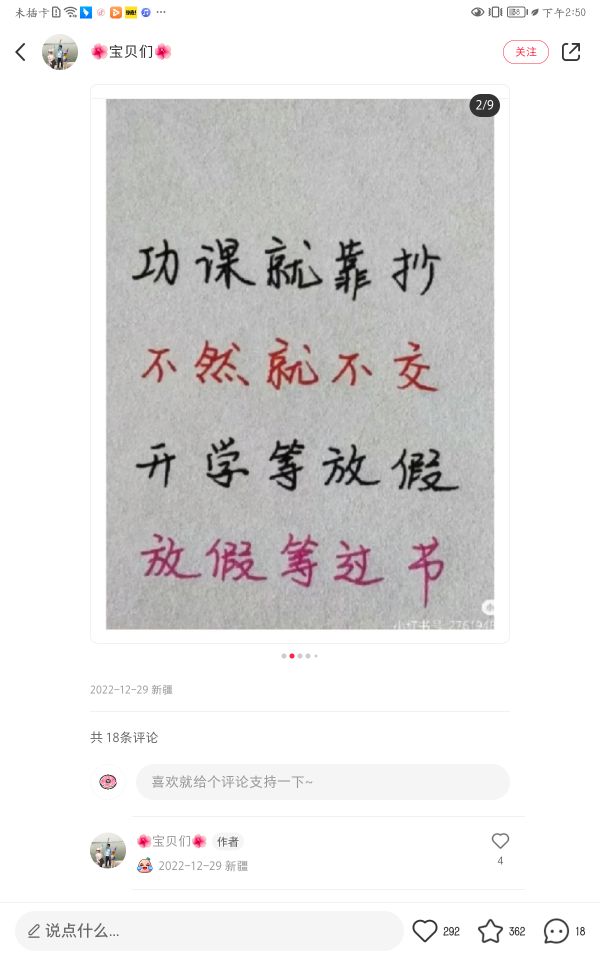 未插卡
下午2:50
🌺宝贝们🌺
关注
2/9
功课就靠抄
不然就不交
开学等放假
放假等过节
小红书号
2022-12-29 新疆
共 18条评论
喜欢就给个评论支持一下~
🌺宝贝们🌺 作者
2022-12-29 新疆
4
说点什么...
292
362
18